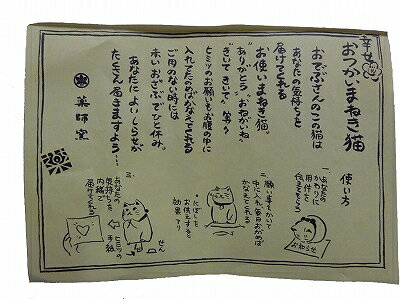 幸せ
おつかいまねき猫
おでぶさんのこの猫は
あなたの気持ちを
届けてくれる
お使いまねき猫。
ありがとう、おねがいね
きいてきいて、等々
ヒミツのお願いをお腹の中に
入れてたのめばかなえてくれる
ご用のない時には
赤いおざぶでひと休み。
あなたによいしらせが
たくさん届きますよう…
薬師窯
使い方
一 あなたの
かわりに
用件を
伝えてもらう
お知らせ
二 願い事をかいて
中に入れ毎日おがめば
かなえてくれる
にぼしを
お供えすると
効果アリ
三 あなたの
気持ちを
内緒で
届けてくれる
ヒミツの
手紙
せん